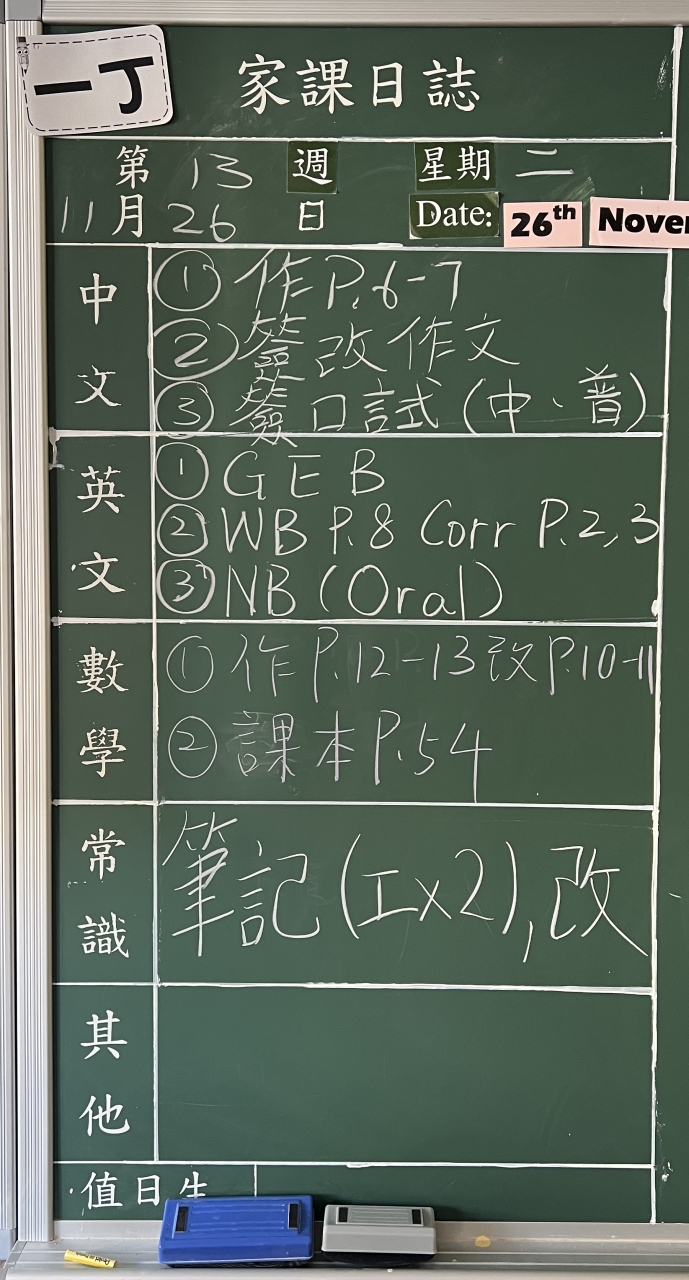 一丁
家課日誌
第 13 週 星期 二
11月 26 日 Date: 26th Nover
中文
① 作P.6-7
② 簽改作文
③ 簽口試(中、普)
英文
① GEB
② WB P.8 Corr P.2,3
③ NB (Oral)
數學
① 作P.12-13改P.10-11
② 課本P.54
常識
筆記(工x2),改
其他
值日生